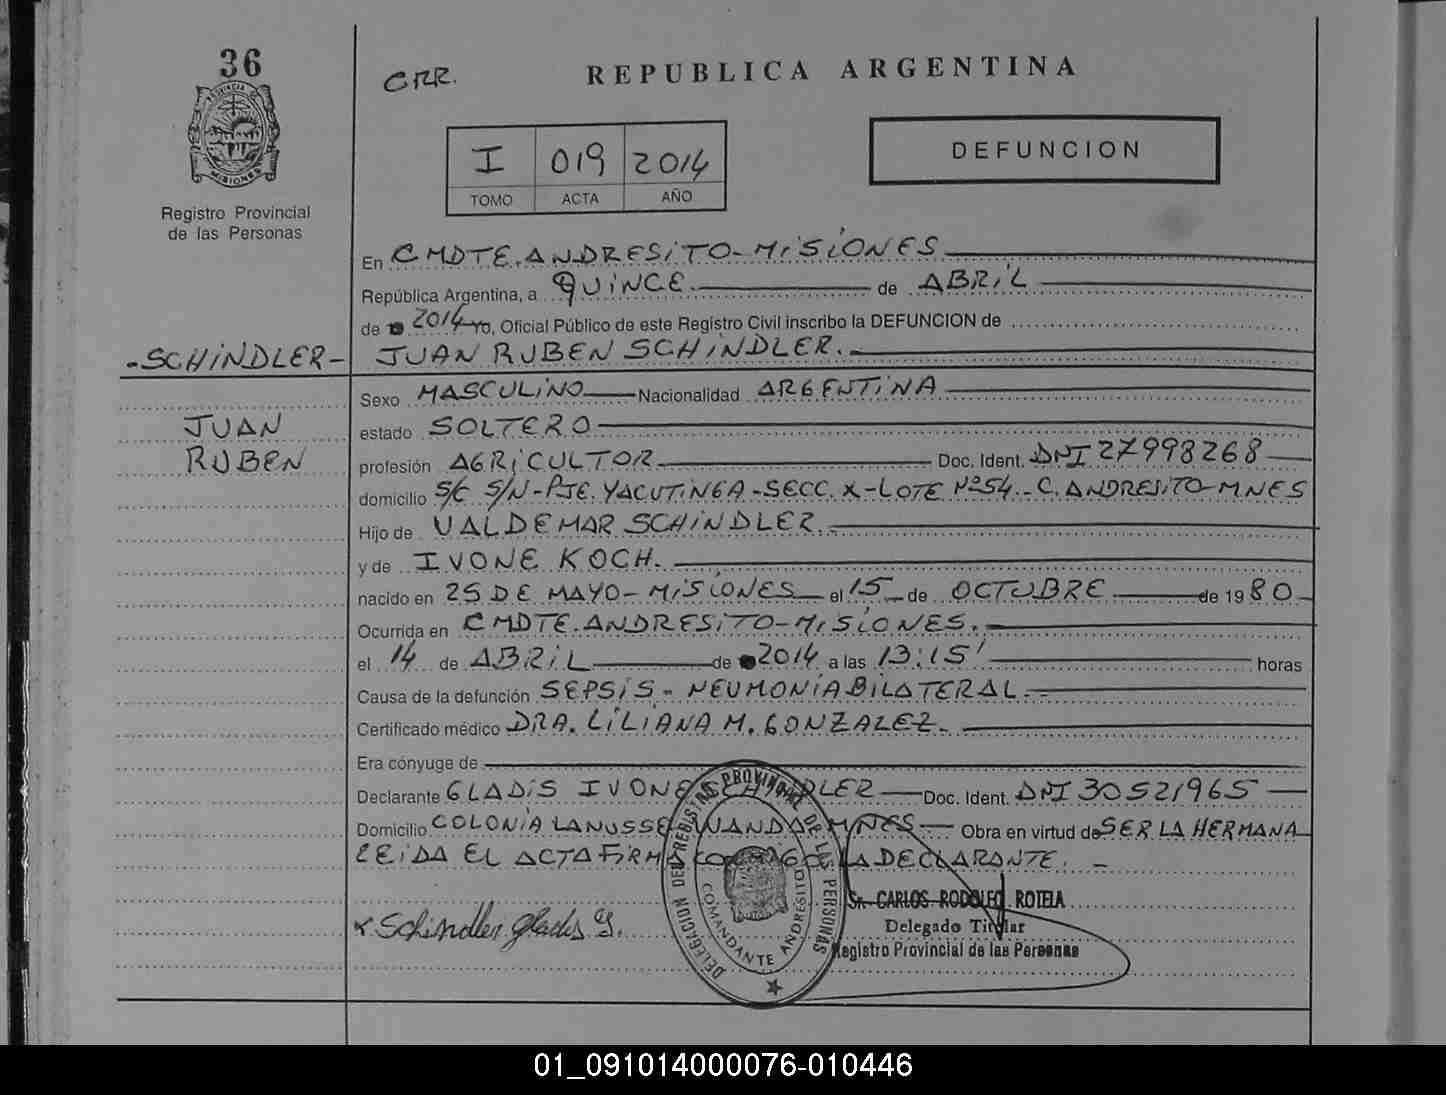 36
PROVINCIA DE
MISIONES
Registro Provincial
de las Personas
CRR.
REPUBLICA ARGENTINA
I 019 2014
TOMO ACTA AÑO
DEFUNCION
En CMDTE. ANDRESITO - MISIONES
República Argentina, a QUINCE de ABRIL
de 2014 Yo, Oficial Público de este Registro Civil inscribo la DEFUNCION de
-SCHINDLER- JUAN RUBEN SCHINDLER.
Sexo MASCULINO Nacionalidad ARGENTINA
JUAN estado SOLTERO
RUBEN profesión AGRICULTOR Doc. Ident. DNI 27998268
domicilio S/C S/N - PJE. YACUTINGA - SECC. X - LOTE Nº 54 - C. ANDRESITO - MNES
Hijo de VALDEMAR SCHINDLER.
y de IVONE KOCH.
nacido en 25 DE MAYO - MISIONES el 15 de OCTUBRE de 1980
Ocurrida en CMDTE. ANDRESITO - MISIONES.
el 14 de ABRIL de 2014 a las 13:15' horas
Causa de la defunción SEPSIS - NEUMONIA BILATERAL.
Certificado médico DRA. LILIANA M. GONZALEZ.
Era cónyuge de
Declarante GLADIS IVONE SCHINDLER Doc. Ident. DNI 30521965
Domicilio COLONIA LANUSSE WANDA MNES Obra en virtud de SER LA HERMANA
LEIDA EL ACTA FIRMA CONMIGO LA DECLARANTE.
x Schindler Gladis Y.
DELEGACION DEL REGISTRO PROVINCIAL DE LAS PERSONAS
COMANDANTE ANDRESITO
Sr. CARLOS RODOLFO ROTELA
Delegado Titular
Registro Provincial de las Personas
01_091014000076-010446